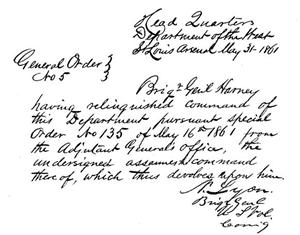 Head Quarters
Department of the West
St Louis Arsenal May 31-1861
General Order }
No 5 }
Brigr Genl Harney
having relinquished command of
this Department pursuant special
Order No 135 of May 16th 1861 from
the Adjutant Generals office, the
undersigned assumes command
thereof, which thus devolves upon him.
N. Lyon.
Brigr Genl
U S Vol.
Comg